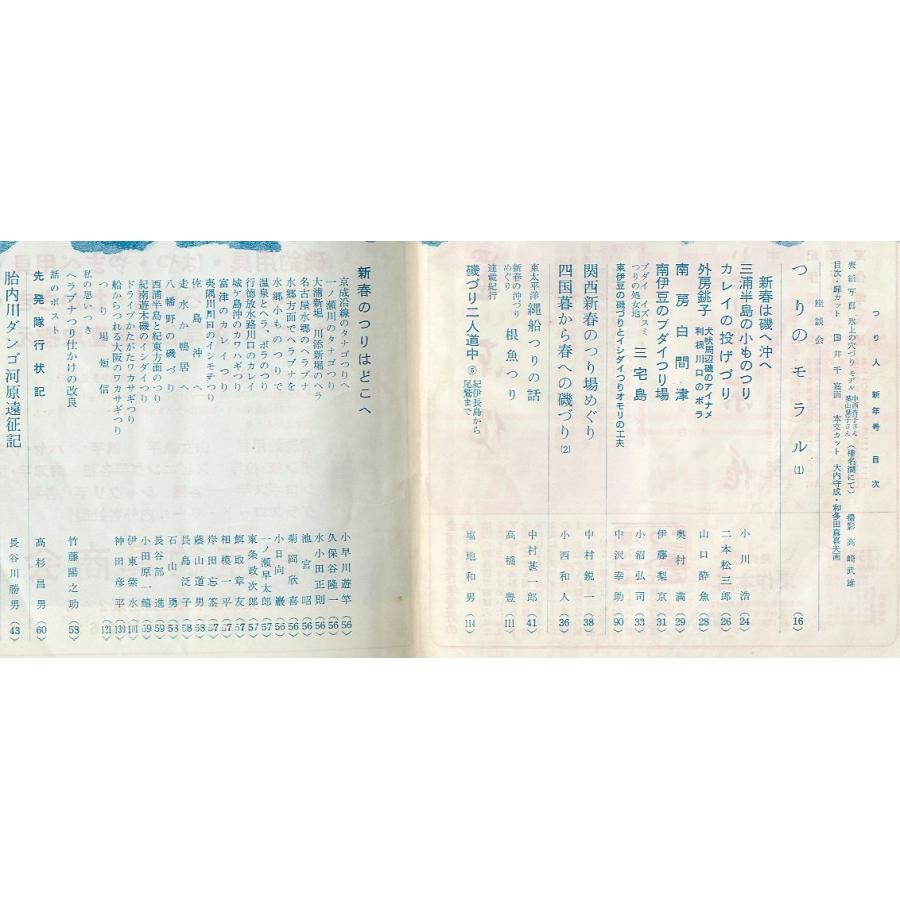 つり人 新年号 目次
表紙写真 氷上の穴づり モデル 中西杏子さん 葉山葉子さん (榛名湖にて) 撮影 高崎武雄
目次・扉カット 国井千寛画 本文カット 大内守成・和多田喜美夫画
座談会
つりのモラル (1) (16)
新春は磯へ沖へ
三浦半島の小ものつり 小川浩 (24)
カレイの投げづり 二本松三郎 (26)
外房銚子 犬吠周辺磯のアイナメ 利根川口のボラ 山口酔魚 (28)
南房白間津 奥村満 (29)
南伊豆のブダイつり場 伊藤梨京 (31)
ブダイ イズスミ つりの処女地 三宅島 小沼弘司 (33)
東伊豆の磯づりとイシダイつりオモリの工夫 中沢幸助 (90)
関西新春のつり場めぐり 中村鋭一 (38)
四国暮から春への磯づり (2) 小西和人 (36)
東太平洋 縄船つりの話 中村甚一郎 (41)
新春の沖づりめぐり 根魚つり 高橋豊 (111)
連載紀行
磯づり二人道中 (6) 紀伊長島から尾鷲まで 塩地和男 (114)
新春のつりはどこへ
京成沿線のタナゴつりへ 小早川遊竿 (56)
一ノ瀬川のタナゴつり 久保谷隆一 (56)
大浦新堀 川添新堀のヘラ 水小田正則 (56)
名古屋水郷のヘラブナ 池宮昭 (56)
水郷方面でヘラブナを 菊岡欣喜 (56)
水郷小ものつりで 小日向巌 (56)
温泉とヘラ、ボラのつり 一ノ瀬早太郎 (57)
行徳放水路川口のカレイ 東条政次郎 (57)
城ケ島沖のカワハギつり 餌取章友 (57)
富津のカレイつり 相模一平 (57)
夷隅川川口のイシモチつり 岸田忘筌 (57)
佐島沖へ 蔭山道男 (58)
走水か鴨居へ 長島泛子 (58)
八幡野の磯づり 石山勇 (58)
西浦半島と紀東方面のつり 長谷部進 (59)
紀南遊木磯のイシダイつり 小田原一鯒 (59)
ドライブかたがたワカサギつり 伊東紫水 (101)
船からつれる大阪のワカサギつり 神田彦平 (130)
つり場短信 (121)
私の思いつき
ヘラブナつり仕かけの改良 竹藤陽之助 (53)
話のポスト
先発隊行状記 高杉昌男 (60)
胎内川ダンゴ河原遠征記 長谷川勝男 (43)